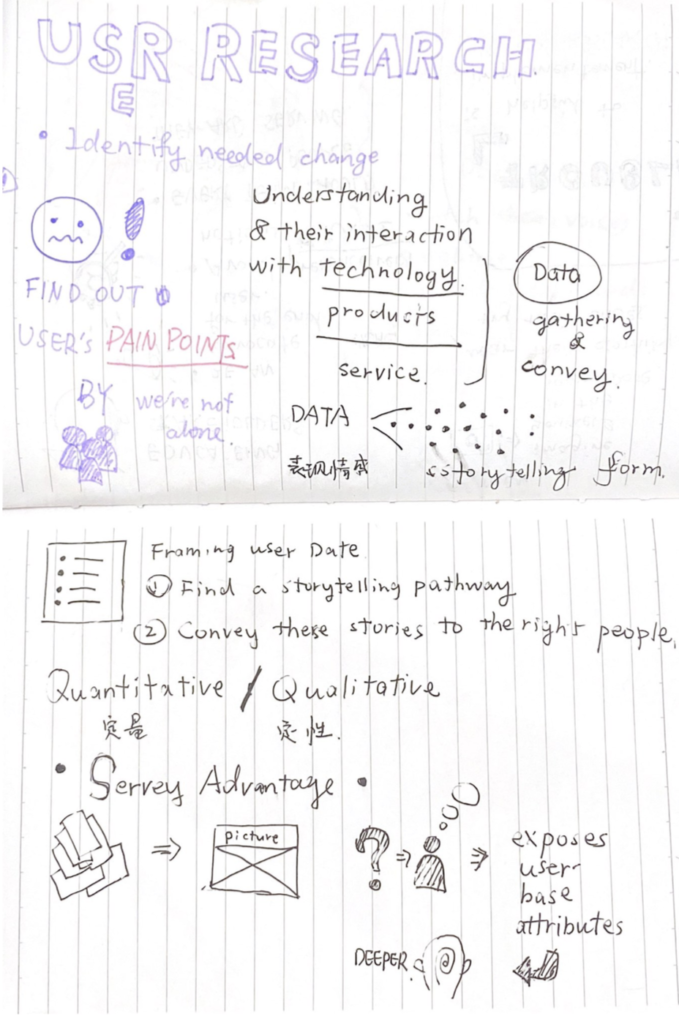 USR RESEARCH
E
• Identify needed change
FIND OUT
USER'S PAIN POINTS
BY we're not
alone.
Understanding
& their interaction
with technology.
products
service.
Data
gathering
&
convey.
DATA
表现情感 storytelling form.
Framing user Date
① Find a storytelling pathway
② Convey these stories to the right people.
Quantitative / Qualitative
定量 定性.
• Servey Advantage •
picture
?
exposes
user-
base
attributes
DEEPER.